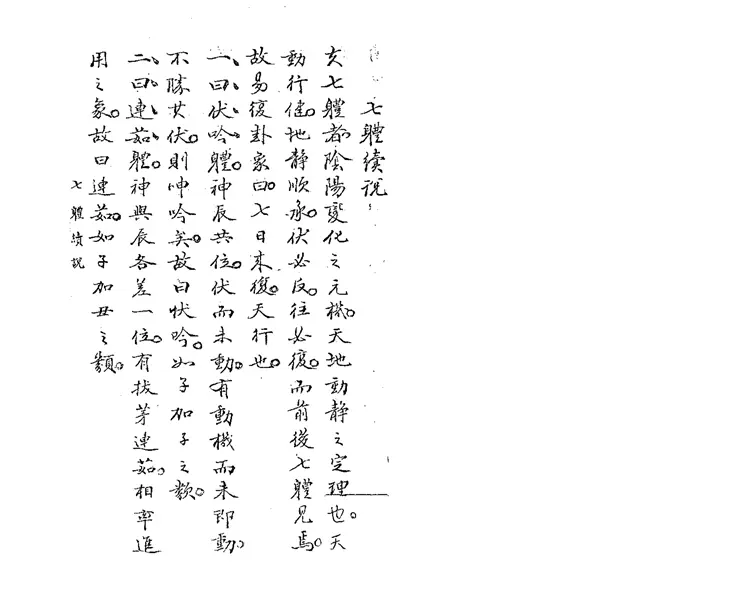 七體續說
夫七體者陰陽變化之元機。天地動靜之定理也。天
動行健。地靜順承。伏必反。往必復。而前後七體見焉。
故易復卦彖曰。七日來復。天行也。
一、曰、伏、吟、體。神辰共位。伏而未動。有動機而未即動。
不勝其伏。則呻吟矣。故曰伏吟。如子加子之類。
二、曰、連、茹、體。神與辰各差一位。有拔茅連茹。相率進
用之象。故曰連茹。如子加丑之類。
七體續說